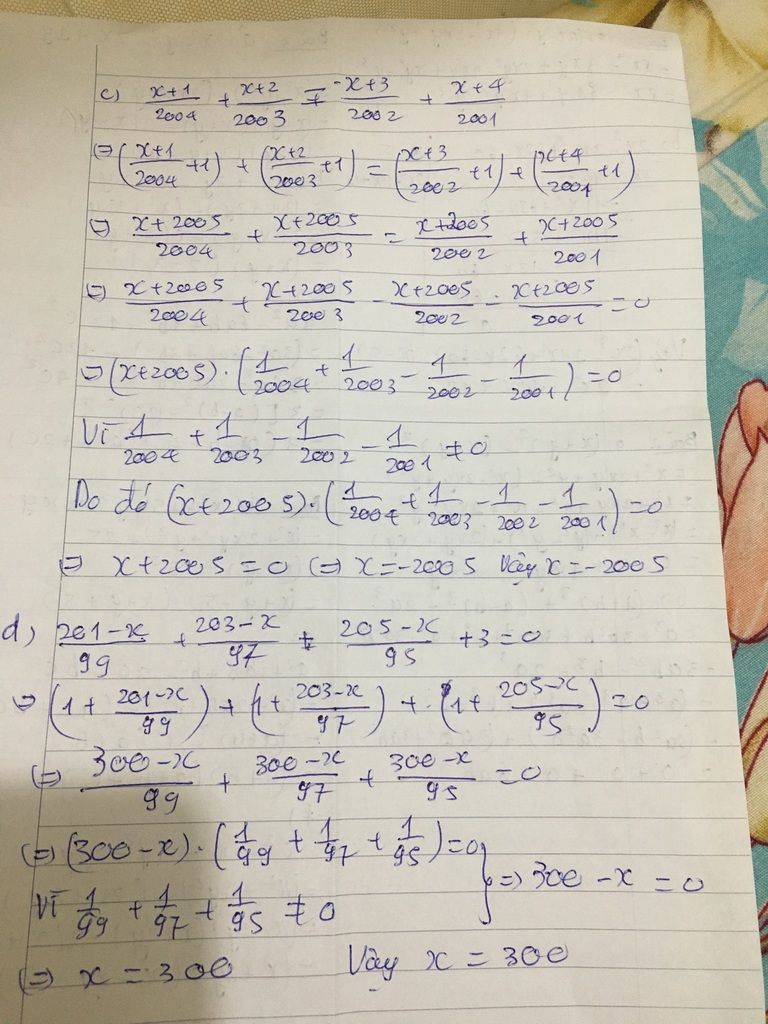 c) (x+1)/2004 + (x+2)/2003 = (x+3)/2002 + (x+4)/2001
⇔ ((x+1)/2004 + 1) + ((x+2)/2003 + 1) = ((x+3)/2002 + 1) + ((x+4)/2001 + 1)
⇔ (x+2005)/2004 + (x+2005)/2003 = (x+2005)/2002 + (x+2005)/2001
⇔ (x+2005)/2004 + (x+2005)/2003 - (x+2005)/2002 - (x+2005)/2001 = 0
⇔ (x+2005) . (1/2004 + 1/2003 - 1/2002 - 1/2001) = 0
Vì 1/2004 + 1/2003 - 1/2002 - 1/2001 ≠ 0
Do đó (x+2005) . (1/2004 + 1/2003 - 1/2002 - 1/2001) = 0
⇔ x+2005 = 0 ⇔ x = -2005 Vậy x = -2005
d) (201-x)/99 + (203-x)/97 + (205-x)/95 + 3 = 0
⇔ (1 + (201-x)/99) + (1 + (203-x)/97) + (1 + (205-x)/95) = 0
⇔ (300-x)/99 + (300-x)/97 + (300-x)/95 = 0
⇔ (300-x) . (1/99 + 1/97 + 1/95) = 0
Vì 1/99 + 1/97 + 1/95 ≠ 0 } ⇒ 300 - x = 0
⇔ x = 300 Vậy x = 300